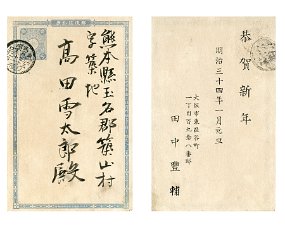 熊本縣玉名郡築山村
字築地
高田雪太郎殿
恭賀新年
明治三十四年一月元旦
大阪市東區谷町
田中豐輔